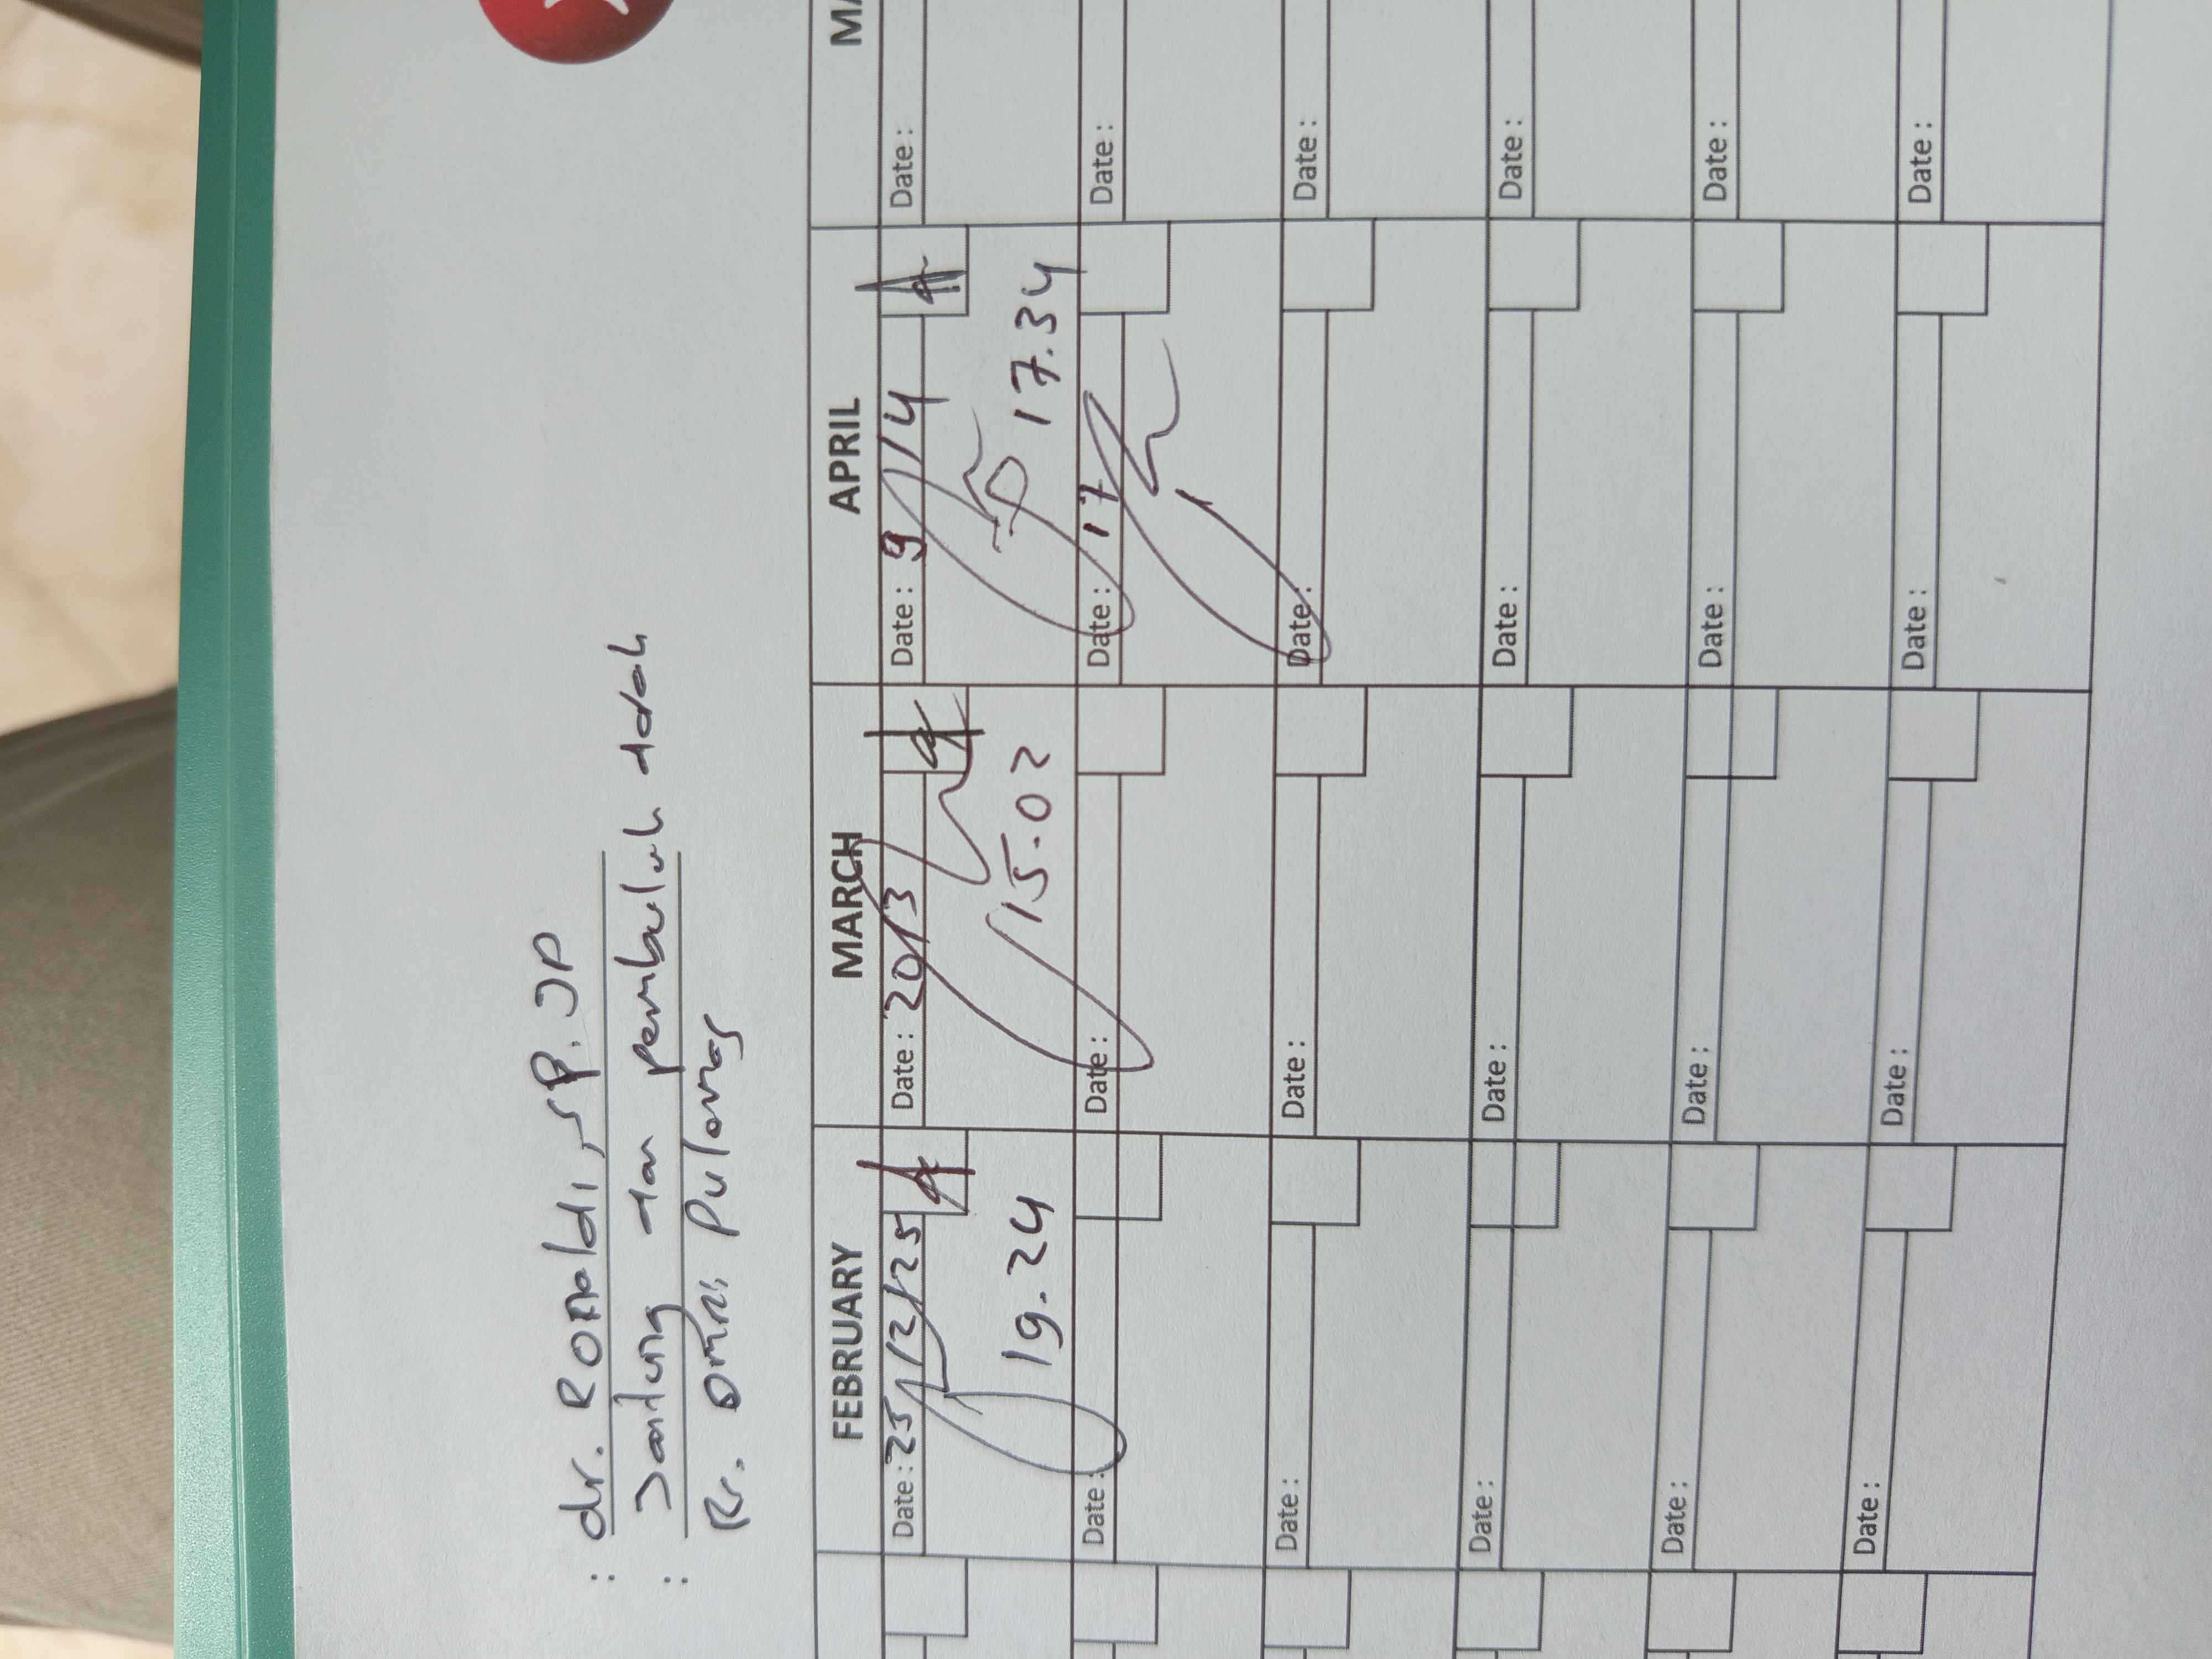 : dr. Ronaldi, SP. JP
: Jantung dan pembuluh darah
Rs. Omni Pulomas
FEBRUARY MARCH APRIL MA
Date : 25/2/25 Date : 20/3 Date : 9/4 Date :
19.24 15.02 17.34
Date : Date : Date : 17 Date :
Date : Date : Date : Date :
Date : Date : Date : Date :
Date : Date : Date : Date :
Date : Date : Date : Date :